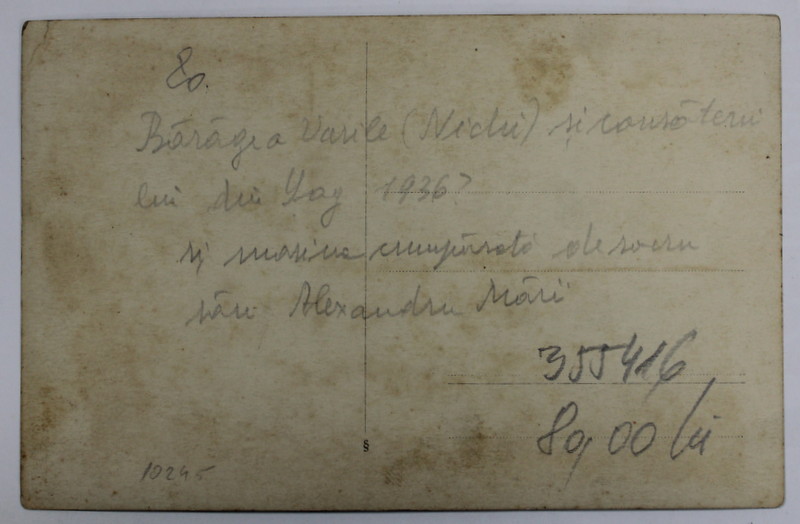 80.
Bărăgea Vasile (Nichi) și consăteni
lui din 1936?
și mașina cumpărată de socru
său Alexandru Mării
355416
80,00 lei
§
10245